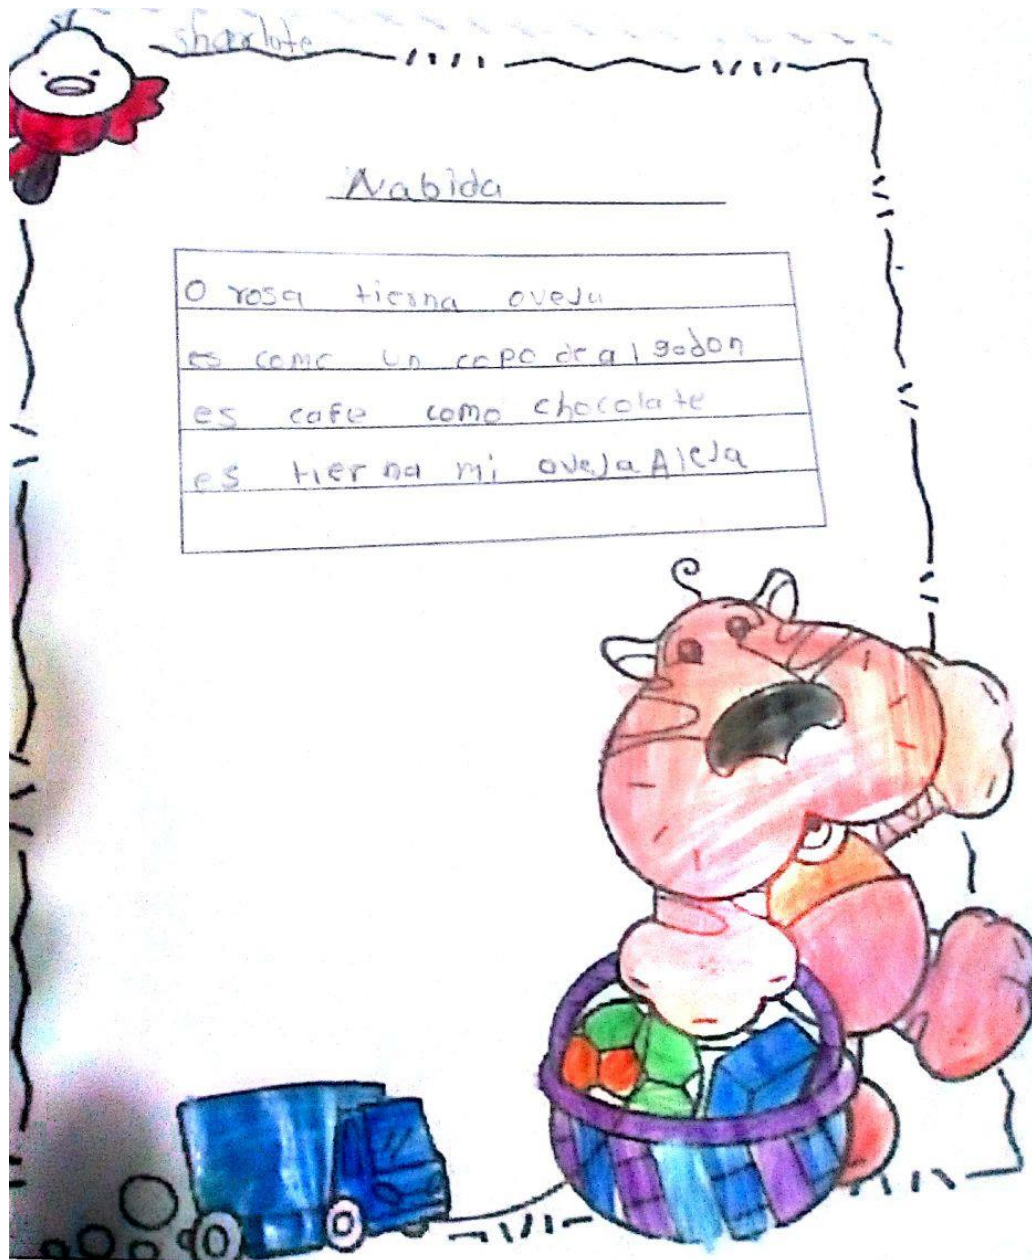 sharlote
Nabida
O rosa tierna oveja
es como un copo de algodon
es cafe como chocolate
es tierna mi oveja Aleja